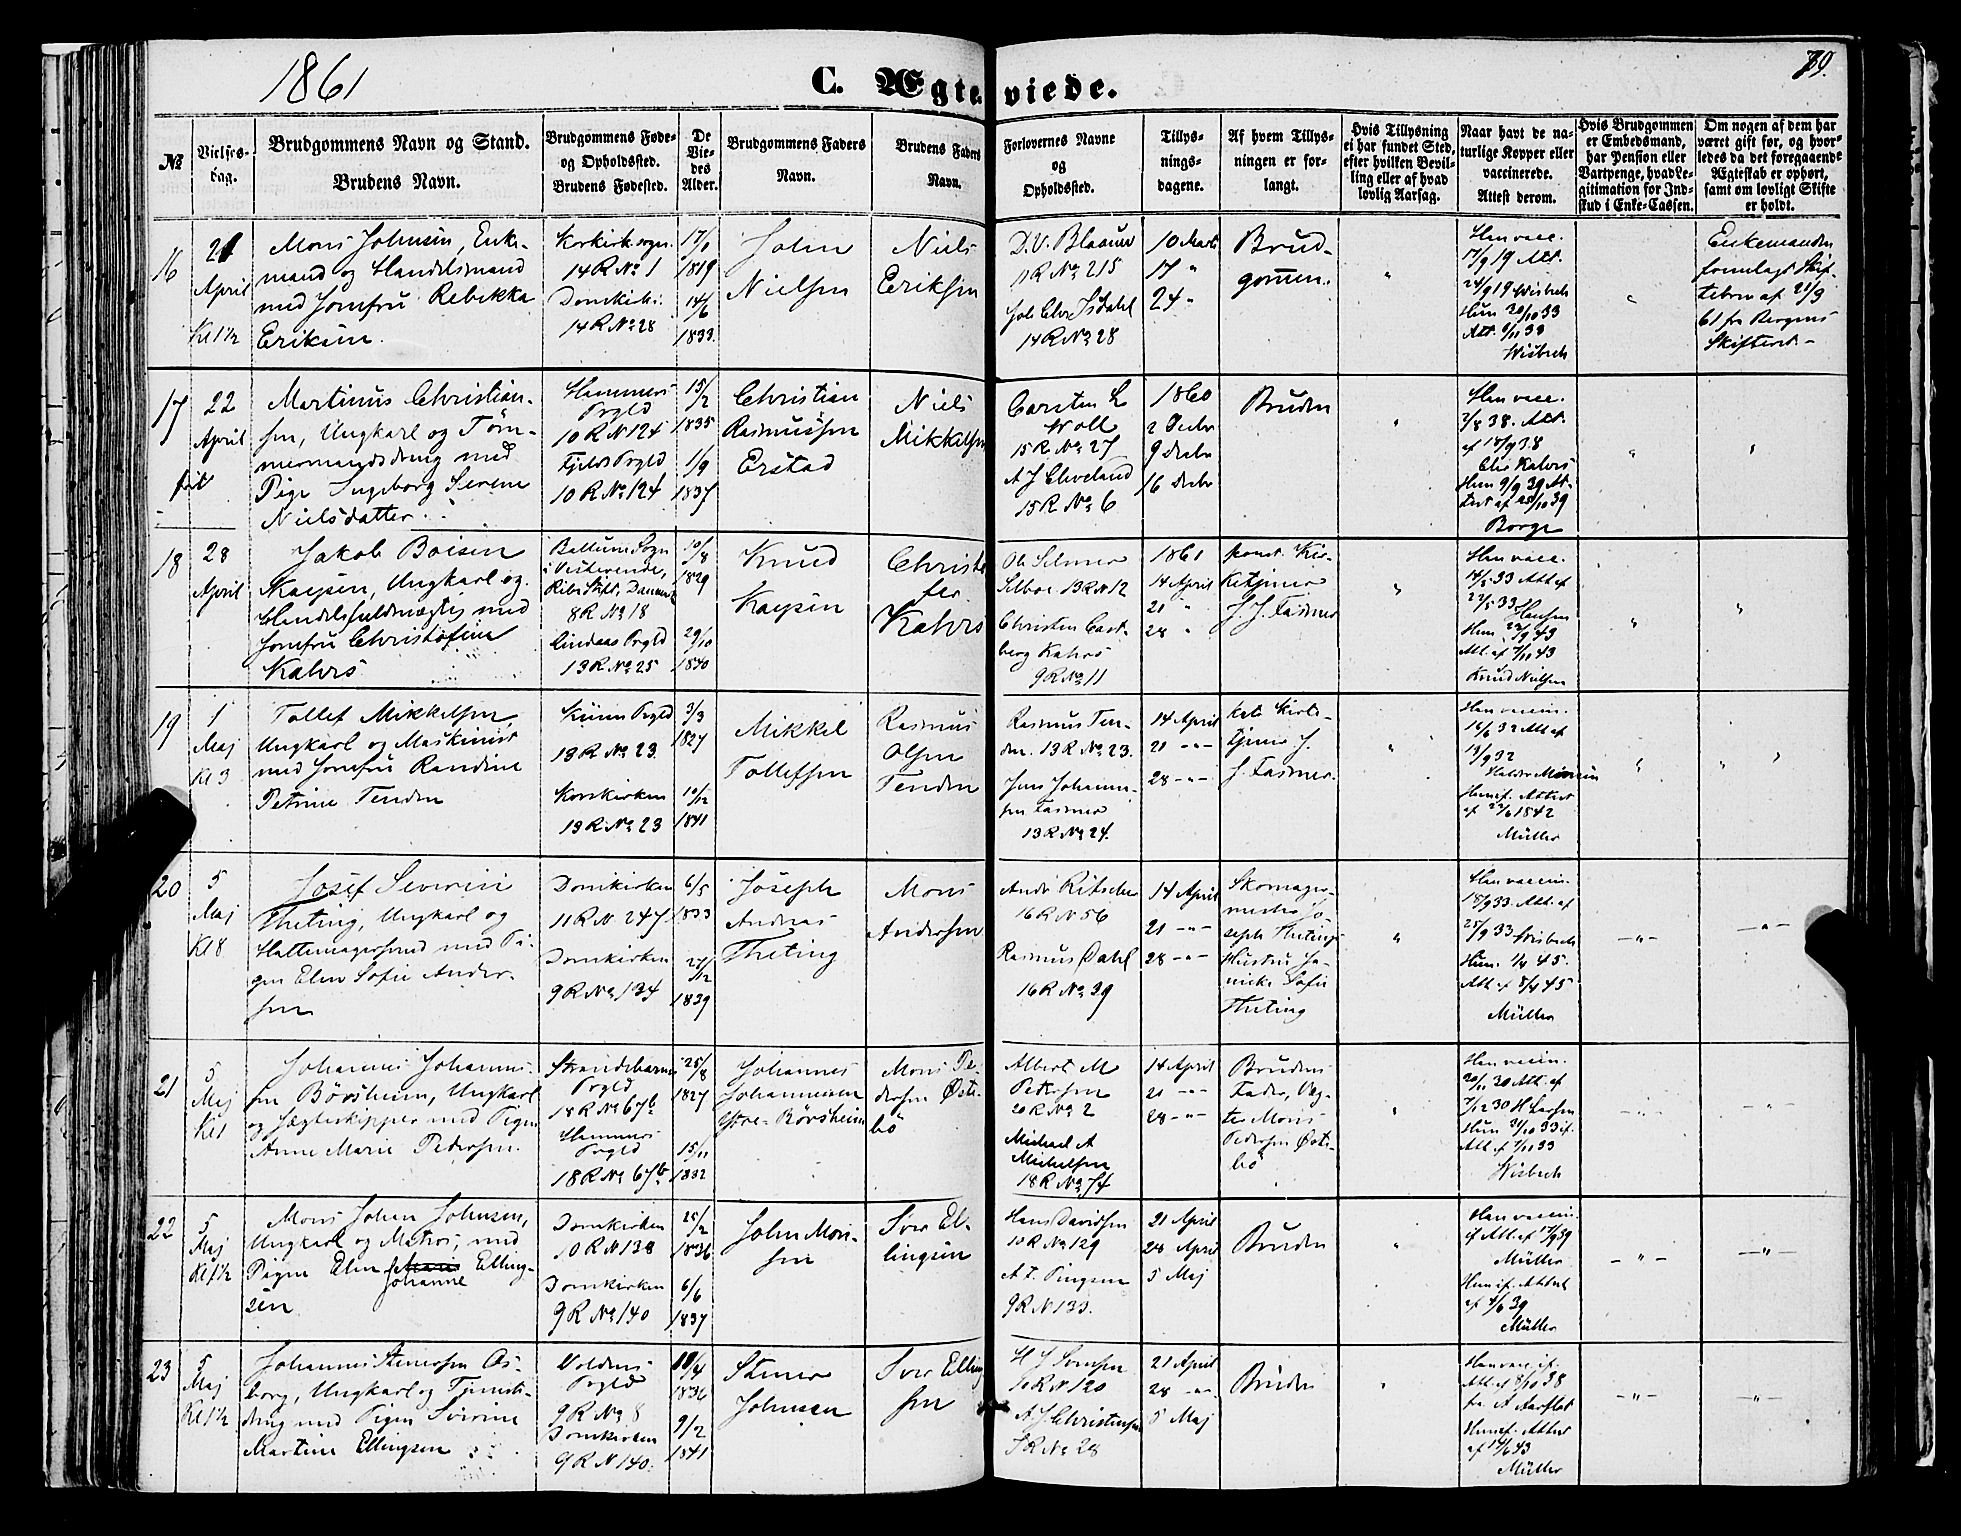 1861
C. Ægteviede.
79.
№
Vielses-
dag.
Brudgommens Navn og Stand.
Brudens Navn.
Brudgommens Føde-
og Opholdssted.
Brudens Fødested.
De
Vie-
des
Alder.
Brudgommens Faders
Navn.
Brudens Faders
Navn.
Forlovernes Navne
og
Opholdssted.
Tillys-
nings-
dagene.
Af hvem Tillys-
ningen er for-
langt.
Hvis Tillysning
ei har fundet Sted,
efter hvilken Bevil-
ling eller af hvad
lovlig Aarsag.
Naar havt de na-
turlige Kopper eller
vaccinerede.
Attest derom.
Hvis Brudgommen
er Embedsmand,
har Pension eller
Vartpenge, hvad Le-
gitimation for Ind-
skud i Enke-Cassen.
Om nogen af dem har
været gift før, og hvor-
ledes da det foregaaende
Ægteskab er ophørt,
samt om lovligt Skifte
er holdt.
16
21
April
Kl 1½
Mons Johnsen, Enke-
mand og Handelsmand
med Jomfru Rebekka
Eriksen.
Korskirk. sogn.
14 R No 1
Domkirk.
14 R No 28
17/1
1819
14/6
1833.
John
Nielsen
Niels
Eriksen
D. V. Blaauw
11 R No 215
Joh Chr Isdahl
14 R No 28
10 Marts
17 "
24 "
Brud-
gommen.
"
Han vacc.
17/9 19 Att.
24/9 19 Wisbech
Hun 20/10 33
Att. 8/11 33
Wisbech
"
Enkemanden
foreslagt Skif-
tebrev af 21/3
61 fra Bergens
Skifteret.
17
22
April
Martinus Christian-
sen, Ungkarl og Tøm-
mermandsdreng med
Pige Ingeborg Serine
Nielsdatter.
Hammers
Prgld
10 R N 124
Fjelds Prgld
10 R No 124
15/2
1835
1/9
1837
Christian
Rasmussen
Erstad
Niels
Mikkelsen
Carsten L
Woll
15 R No 27
A J Cleveland
15 R No 6
1860
2 Decbr
9 Decbr
16 Decbr
Bruden
"
Han vacc.
2/8 38. Att.
af 18/9 38
Claus Kahrs
Hun 9/9 39 At-
test af 25/10 39
Borge
"
"
18
28
April
Jakob Boisen
Kaysen, Ungkarl og
Handelsfuldmægtig med
Jomfru Christofine
Kahrs
Ballum Sogn
i Vesterende,
Ribe Stift, Danmark
8 R No 18
Lindaas Prgld
13 R No 25
10/8
1829
29/10
1840
Knud
Kaysen
Christo-
fer
Kahrs
Ole Selmer
Selboe 13 R N 12
Christen Cast-
berg Kahrs
9 R No 11
1861
14 April
21 "
28 "
const. Kir-
ketjener
J. J. Fasmer
"
Han vacc.
14/5 33 Att af
22/5 33 Hansen
Hun 22/9 43
Att. af 7/10 43
Knud Nielsen
"
"
19
1
Maj
Kl 3
Tollef Mikkelsen,
Ungkarl og Maskinist
med Jomfru Randine
Petrine Tenden
Kinn Prgld
13 R. No 23.
Korskirken
13 R. No 23
3/3
1827
10/12
1841
Mikkel
Tollefsen
Rasmus
Olsen
Tenden
Rasmus Ten-
den. 13 R. No 23.
Jens Johann-
sen Fasmer
13 R. No 24.
14 April
21 - " -
28 - " -
kst. Kirke-
tjener J.
J. Fasmer.
"
Han vaccin.
14/6 32 Att af
13/9 32
Hun if. Attest
af 22/6 1842
Müller
"
"
20
5
Maj
Kl 8
Josef Severin
Theting, Ungkarl og
Hattemagersvend med Pi-
gen Elen Sofie Ander-
sen
Domkirken
11 R N 247
Domkirken
9 R No 134
6/5
1833
27/12
1839
Joseph
Andreas
Theting
Mons
Andersen
Andr Ritscher
16 R N 56
Rasmus Dahl
16 R No 39
14 April
21 - " -
28 - " -
Skomager-
mester Jo-
seph Thetings
Hustru Ja-
nike Sofie
Theting
"
Han vaccin.
18/9 33. Att. af
25/9 33 Wisbech
Hun. 1/4 45.
Att. af 8/4 45
Müller
- " -
- " -
21
5
Maj
Kl 1
Johannes Johannes-
sen Børsheim, Ungkarl
og Jægteskipper med Pigen
Anne Marie Pedersen.
Strandebarms
Prgld
18 R No 67b
Hammers
Prgld
18 R No 67b
25/8
1827
15/11
1832
Johannes
Johannessen
Ytre-Børsheim
Mons Pe-
dersen Øste-
bø
Albert M
Petersen
20 R No 2
Michael A
Michelsen
18 R No 74
14 April
21 - " -
28 - " -
Brudens
Fader, Væg-
ter Mons
Pedersen Øste-
bø
"
Han vaccin.
20/11 30 Att. af
7/12 30 H Larsen
Hun 31/10 33 if.
Att af 7/11 33
Wisbech
- " -
- " -
22
5
Maj
Kl 1½
Mons Johan Johnsen,
Ungkarl og Matros, med
Pigen Elen Johanne Elling-
sen
Domkirken
10 R N 138
Domkirken
9 R No 140
25/2
1836
6/6
1837
John Mon-
sen
Iver El-
lingsen
Hans Davidsen
10 R No 129
A. T. Pingsen
9 R N 133.
21 April
28 April
5 Maj
Bruden
"
Han vaccin.
if Att. af 17/9 39
Müller
Hun if. Attest
af 4/6 39
Müller
- " -
- " -
23
5
Maj
Kl 1½
Johannes Stenersen Os-
borg, Ungkarl og Tjeneste-
dreng med Pigen Severine
Martine Ellingsen
Voldens
Prgld
9 R No 8
Domkirken
9 R N 140.
18/4
1836
9/2
1841
Stener
Johnsen
Iver Elling-
sen
10 R N 120
A. J. Christensen
5 R No 28
21 April
28 - " -
5 Maj
Bruden
"
Han vacc. if.
Att af 8/10 38
fra A Aarflot
Hun if. Attest
af 14/6 43
Müller
- " -
- " -